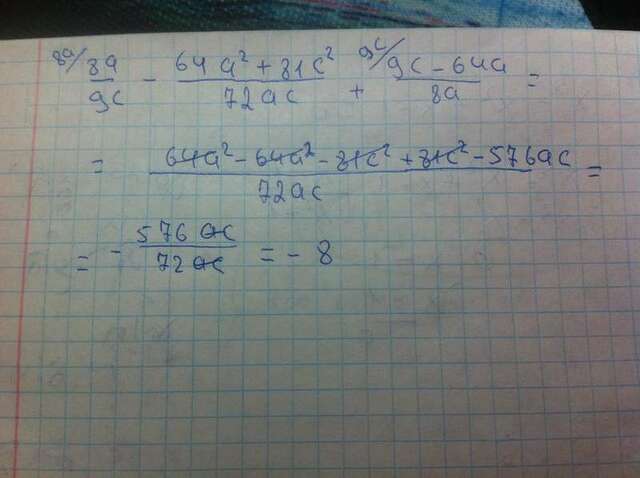 8a/ 8a/9c - (64a² + 81c²)/72ac + 9c/ (9c - 64a)/8a =
= (64a² - 64a² - 81c² + 81c² - 576ac)/72ac =
= - 576ac/72ac = - 8